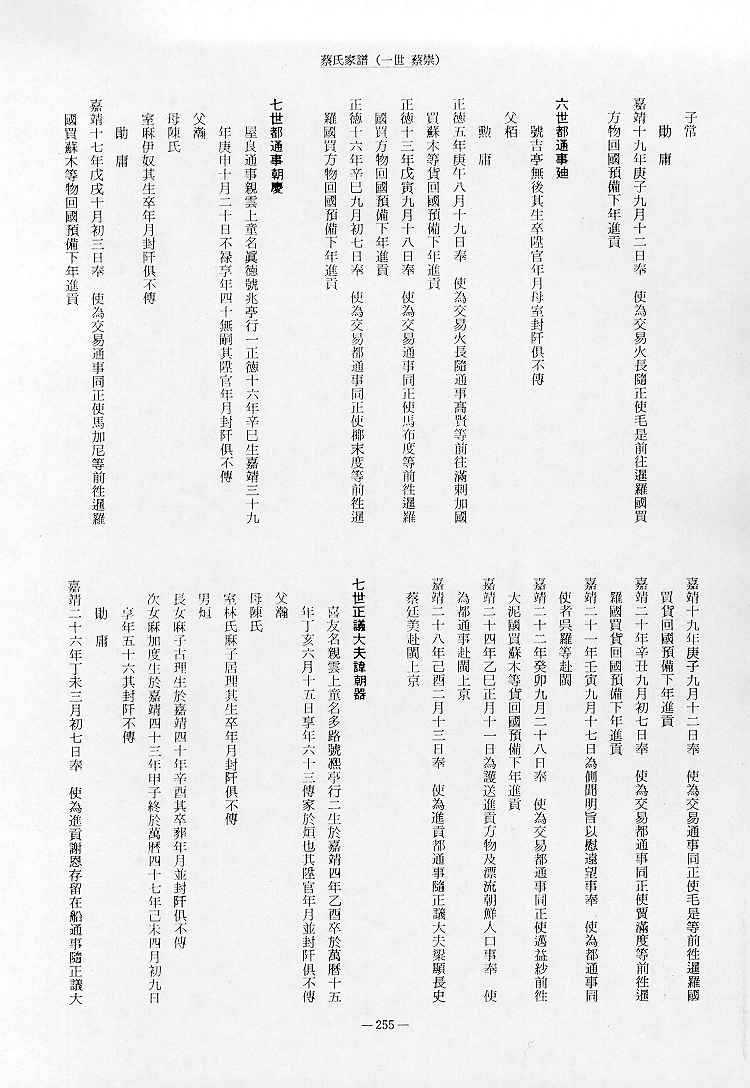 蔡氏家譜（一世 蔡崇）
子常
勛 庸
嘉靖十九年庚子九月十二日奉 使為交易火長隨正使毛是前往暹羅國買
方物回國預備下年進貢
六世都通事廸
號吉亭無後其生卒陞官年月母室封阡俱不傳
父栢
勲 庸
正德五年庚午八月十九日奉 使為交易火長隨通事高賢等前往滿剌加國
買蘇木等貨回國預備下年進貢
正德十三年戊寅九月十八日奉 使為交易通事同正使馬布度等前徃暹羅
國買方物回國預備下年進貢
正德十六年辛巳九月初七日奉 使為交易都通事同正使椰末度等前徃暹
羅國買方物回國預備下年進貢
七世都通事朝慶
屋良通事親雲上童名眞德號兆亭行一正德十六年辛巳生嘉靖三十九
年庚申十月二十日不禄享年四十無嗣其陞官年月封阡俱不傳
父瀚
母陳氏
室麻伊奴其生卒年月封阡俱不傳
勛 庸
嘉靖十七年戊戌十月初三日奉 使為交易通事同正使馬加尼等前徃暹羅
國買蘇木等物回國預備下年進貢
嘉靖十九年庚子九月十二日奉 使為交易通事同正使毛是等前徃暹羅國
買貨回國預備下年進貢
嘉靖二十年辛丑九月初七日奉 使為交易都通事同正使賈滿度等前徃暹
羅國買貨回國預備下年進貢
嘉靖二十一年壬寅九月十七日為側聞明旨以慰遠望事奉 使為都通事同
使者吳羅等赴閩
嘉靖二十二年癸卯九月二十八日奉 使為交易都通事同正使邁益紗前徃
大泥國買蘇木等貨回國預備下年進貢
嘉靖二十四年乙巳正月十一日為護送進貢方物及漂流朝鮮人口事奉 使
為都通事赴閩上京
嘉靖二十八年己酉二月十三日奉 使為進貢都通事隨正議大夫梁顯長史
蔡廷美赴閩上京
七世正議大夫諱朝器
喜友名親雲上童名多路號凞亭行二生於嘉靖四年乙酉卒於萬曆十五
年丁亥六月十五日享年六十三傳家於烜也其陞官年月並封阡俱不傳
父瀚
母陳氏
室林氏麻子居理其生卒年月封阡俱不傳
男烜
長女麻子古理生於嘉靖四十年辛酉其卒葬年月並封阡俱不傳
次女麻加度生於嘉靖四十三年甲子終於萬曆四十七年己未四月初九日
享年五十六其封阡不傳
勛 庸
嘉靖二十六年丁未三月初七日奉 使為進貢謝恩存留在船通事隨正議大
— 255 —